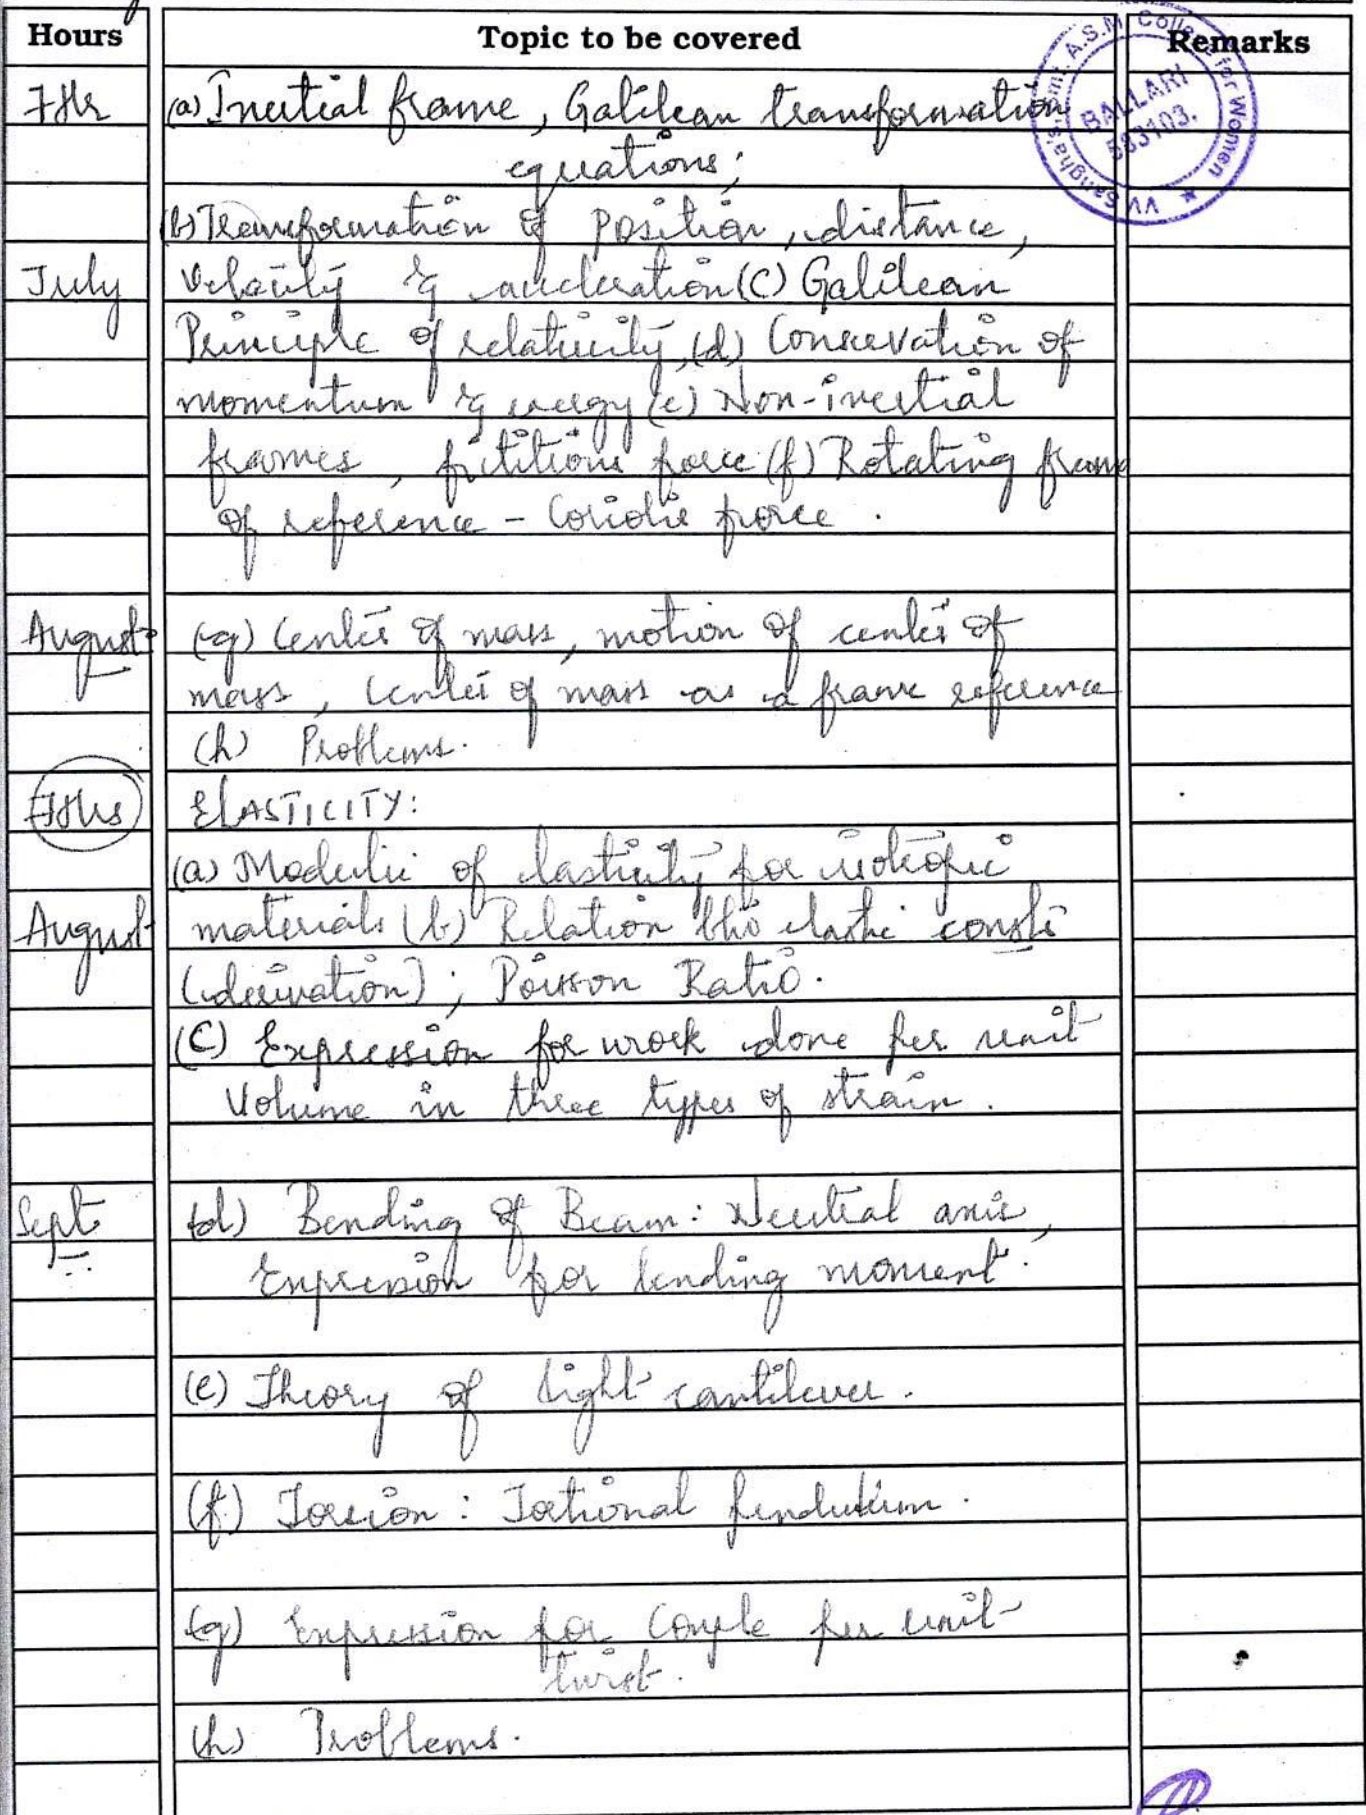 Hours Topic to be covered Remarks
7Hr (a) Inertial frame, Galilean transformation
equations;
(b) Transformation of position, distance,
July Velocity & acceleration (C) Galilean
Principle of relativity, (d) Conservation of
momentum & energy (e) Non-inertial
frames, fictitious force (f) Rotating frame
of reference - Coriolis force.
August (g) Center of mass, motion of center of
mass, Center of mass as a frame reference
(h) Problems.
7Hrs ElASTICITY:
(a) Moduli of lasticity for isotropic
August materials (b) Relation b/w elastic consts
(derivation); Poisson Ratio.
(C) Expression for work done per unit
Volume in three types of strain.
Sept (d) Bending of Beam: Neutral axis,
Expression for bending moment.
(e) Theory of light cantilever.
(f) Torsion: Tortional pendulum.
(g) Expression for Couple per unit
twist.
(h) Problems.
VV Sangha's, Smt. A.S.M. College for Women
BALLARI
583103.